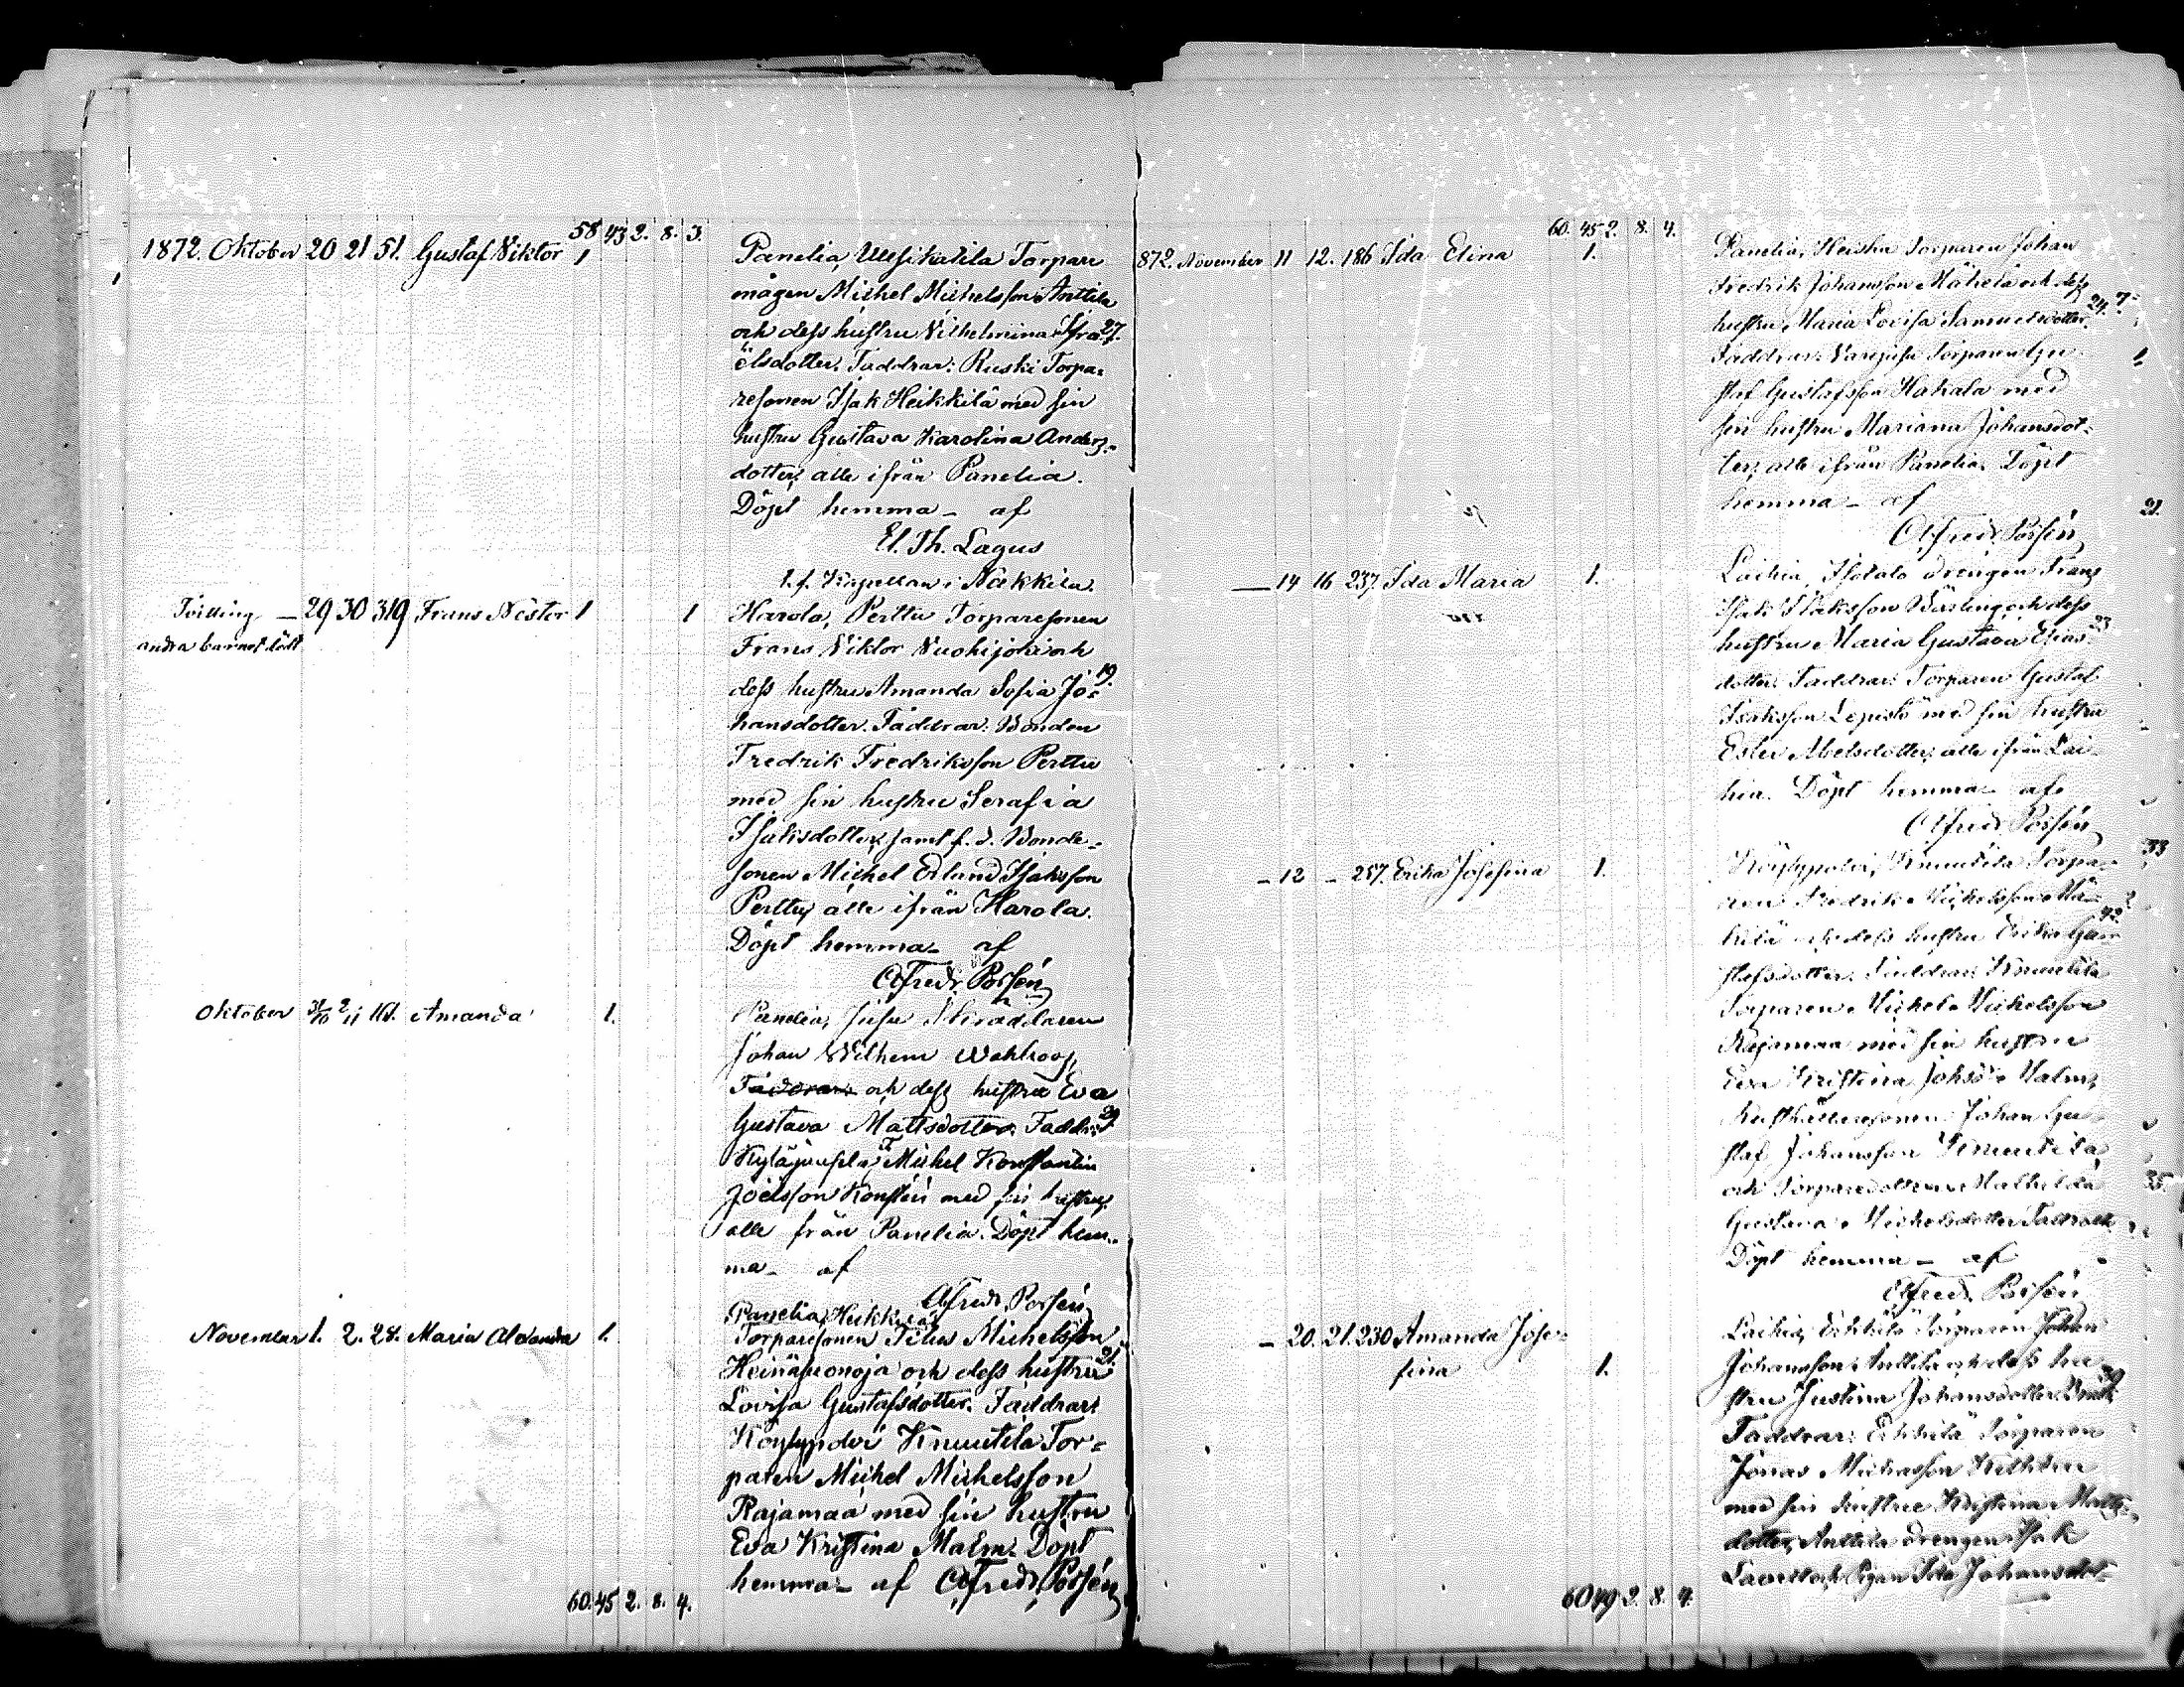 58 43 2. 8. 3.
1872. Oktober 20 21 51. Gustaf Viktor 1 Panelia, Uusikatila Torpare
mågen Michel Michelsson Anttila
och dess hustru Vilhelmina Isra 27.
elsdotter. Faddrar: Ruski Torpa=
resonen Isak Heikkilä med sin
hustru Gustava Karolina Anders=
dotter, alle ifrån Panelia.
Döpt hemma _ af
El. Th. Lagus
t. f. Kapellan i Nakkila.
Tvilling _ 29 30 319 Frans Nestor 1 1 Harola, Perttu Torparesonen
andra barnet dödt Frans Viktor Vuohijoki och
dess hustru Amanda Sofia Jo= 19.
hansdotter. Faddrar: Bonden
Fredrik Fredriksson Perttu
med sin hustru Serafia
Isaksdotter, samt f. d. Bonde=
sonen Michel Erland Isaksson
Perttu, alle ifrån Harola.
Döpt hemma _ af
Alfred Porsén
Oktober 31/10 2/11 161. Amanda 1. Panelia, Juhu
Johan Wilhem Wahlroos,
Faddrar: och dess hustru Eva
Gustava Mattsdotter. Faddr: 29.
Kyläjunsela, T. Mikel Konstantin
Joelsson Konsteri med sin hustru,
alle från Panelia. Döpt hem=
ma _ af
Alfred Porsén
November 1. 2. 28. Maria Alexandra 1. Panelia, Heikkilä
Torparesonen Michelsson
Heinäsuonoja och dess hustru 21.
Lovisa Gustafsdotter. Faddrar:
Köylypolvi Knuutila Tor=
paren Michel Michelsson
Rajamaa med sin hustru
Eva Kristina Malm. Döpt
hemma _ af Alfred Porsén
60. 45 2. 8. 4.
60. 45 2. 8. 4.
872. November 11 12. 186 Ida Elina 1. Panelia, Heiska Torparen Johan
Fredrik Johansson Mähelä och dess
hustru Maria Lovisa Samuelsdotter. 24.
Faddrar: Torparen Gu=
staf Gustafsson Hakala med
sin hustru Mariana Johansdot=
ter, alle ifrån Panelia. Döpt
hemma _ af
Alfred Porsén
_ 14 16 237. Ida Maria 1. Laihia, Isotalo drengen Frans
Isak Isaksson och dess
hustru Maria Gustava Elias= 23
dotter. Faddrar: Torparen Gustaf
Isaksson Lepistö med sin hustru
Ester Abelsdotter, alle ifrån Lai=
hia. Döpt hemma _ af
Alfred Porsén
_ 12 _ 257. Erika Josefina 1. Köylypolvi, Knuutila Torpa=
ren Fredrik Michelsson Mä=
kilä och dess hustru Erika Gu= 42
stafsdotter. Faddrar: Knuutila
Torparen Michel Michelsson
Rajamaa med sin hustru
Eva Kristina Johsd:r Malm,
Rusthållaresonen Johan Gu=
staf Johansson Knuutila
och Torparedottern Mathilda
Gustava Michelsdotter
Döpt hemma _ af
Alfred Porsén
_ 20. 21. 230 Amanda Jose= Laihia, Erkkilä Torparen Johan
fina 1. Johansson Anttila och dess hu=
stru Justina Johansdotter
Faddrar: Erkkilä Torparen
Jonas
med sin hustru Kristina Matts=
dotter, Anttila drengen Isak
och Pigan Ida Johansdot=
60 49 2. 8. 4.